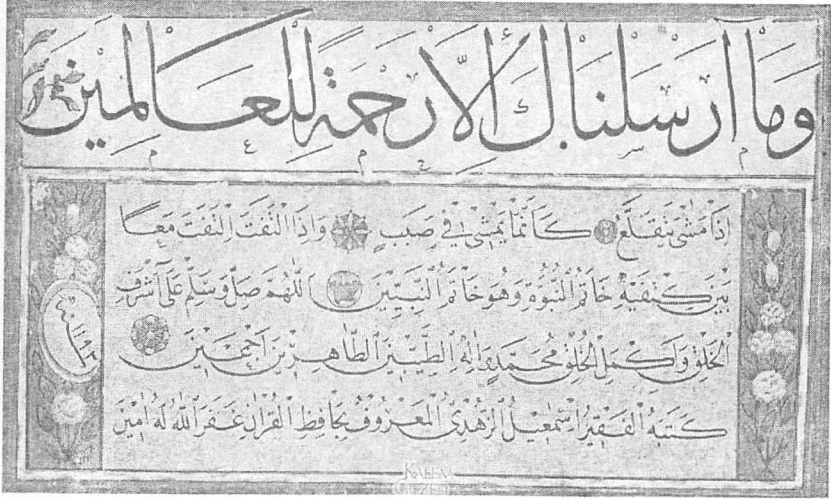 وَمَا أَرْسَلْنَاكَ إِلَّا رَحْمَةً لِلْعَالَمِينَ
اِذَا مَشٰى يَتَقَلَّعُ كَاَنَّمَا يَمْشِي فِي صَبَبٍ وَاِذَا الْتَفَتَ الْتَفَتَ مَعًا
بَيْنَ كَتِفَيْهِ خَاتَمُ النُّبُوَّةِ وَهُوَ خَاتَمُ النَّبِيّٖنَ اَللّٰهُمَّ صَلِّ وَسَلِّمْ عَلٰى اَشْرَفِ
الْخَلْقِ وَاَكْمَلِ الْخُلُقِ مُحَمَّدٍ وَاٰلِهِ الطَّيِّبٖينَ الطَّاهِرٖينَ اَجْمَعٖينَ
كَتَبَهُ الْفَقٖيرُ اِسْمٰعٖيلُ الزُّهْدِيُّ الْمَعْرُوفُ بِحَافِظِ الْقُرْاٰنِ غَفَرَ اللّٰهُ لَهُ اٰمٖينَ